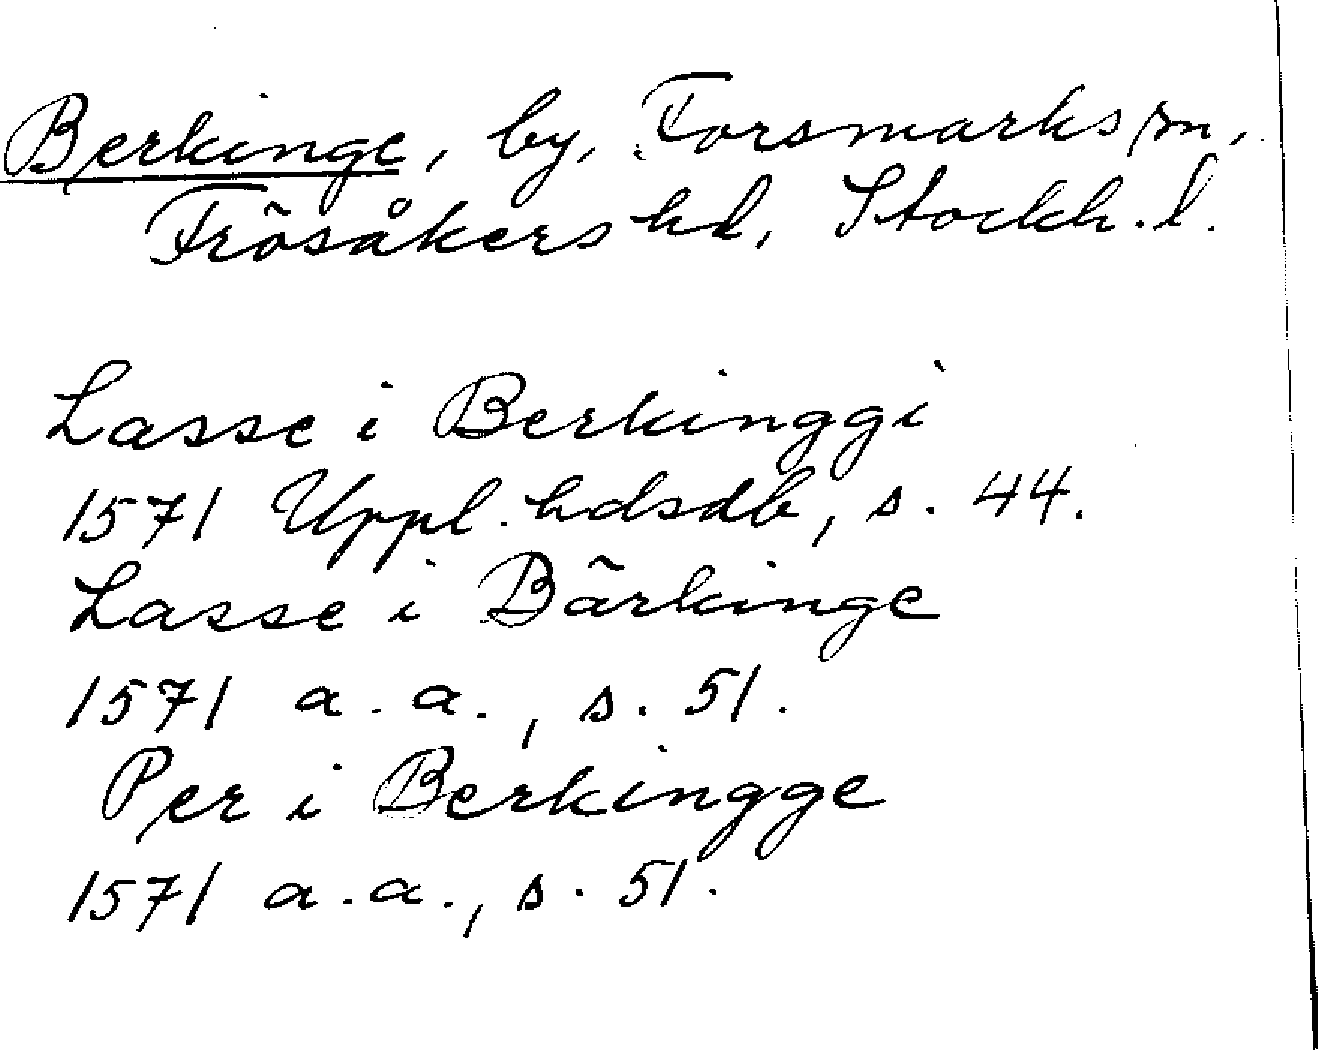 Berkinge, by, Forsmarks sn,
Frösåkers hd, Stockh. l.
Lasse i Berkinggi
1571 Uppl. hdsdb, s. 44.
Lasse i Bärkinge
1571 a.a., s. 51.
Per i Berkingge
1571 a.a., s. 51.